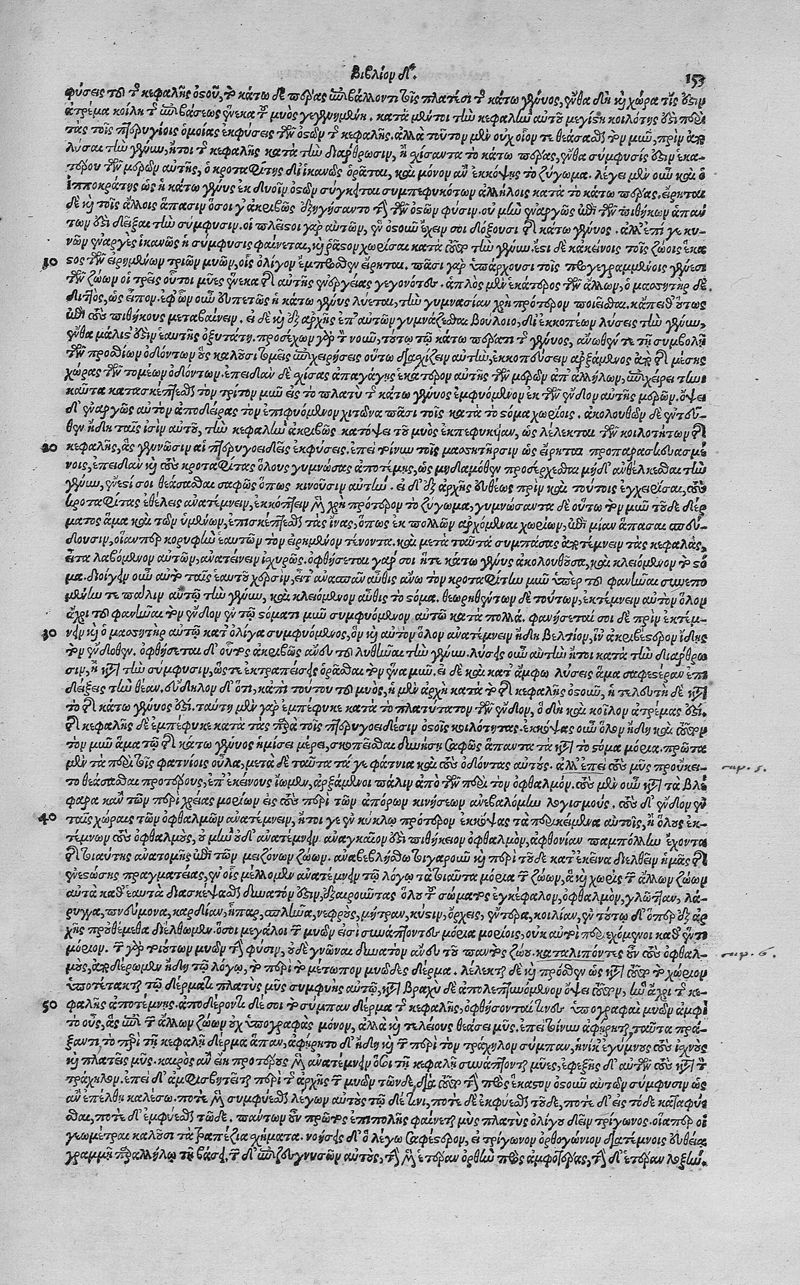 Βιβλίον δ΄. 153
φύσεις τοῦ τῆς κεφαλῆς ὀστοῦ, τὸ κάτω δὲ πέρας ἐπιβάλλοντι τοῖς πλατέσι τῆς κάτω γένυος, ἔνθα δὴ καὶ χώρα τίς ἐστιν
ἀτρέμα κοίλη τῆς ἐπιβάσεως ἕνεκα τοῦ μυὸς γεγενημένη. κατὰ μέντοι τὴν κεφαλὴν αὐτὸ μεγίστη κοιλότης ἐστὶ περὶ
τὰς τοῖς πτερυγίοις ὁμοίας ἐκφύσεις τῶν ὀστῶν τῆς κεφαλῆς. ἀλλὰ τοῦτον μὲν οὐχ οἷόν τε θεάσασθαι τὸν μῦν, πρὶν ἀπο
λῦσαι τὴν γένυν, ἤτοι τῆς κεφαλῆς κατὰ τὴν διάρθρωσιν, ἢ σχίσαντα τὸ κάτω πέρας, ἔνθα σύμφυσίς ἐστιν ἑκα
τέρου τῶν μερῶν αὐτῆς, ὁ κροταφίτης δὲ ἱκανῶς ὁρᾶται, καὶ μόνον ἂν ἐκκόψῃς τὸ ζύγωμα. λέγει μὲν οὖν καὶ ὁ
Ἱπποκράτης ὡς ἡ κάτω γένυς ἐκ δυοῖν ὀστῶν σύγκειται συμπεφυκότων ἀλλήλοις κατὰ τὸ κάτω πέρας, εἴρηται
δὲ καὶ τοῖς ἄλλοις ἅπασιν ὅσοι γ' ἀκριβῶς ἐξηγήσαντο τὴν τῶν ὀστῶν φύσιν. οὐ μὴν ἐναργῶς ἐπὶ τῶν πιθήκων ἁπάν
των ἐστὶ δεῖξαι τὴν σύμφυσιν. οἱ πλεῖστοι γὰρ αὐτῶν, ἓν ὀστοῦν ἔχειν σοι δόξουσι τῆς κάτω γένυος. ἀλλ' ἐπί γε κυ
νῶν ἐναργὲς ἱκανῶς ἡ σύμφυσις φαίνεται, καὶ ῥᾷστον χωρίσαι κατὰ τὴν γένυν. ἔστι δὲ κἀκείνοις τοῖς ζώοις ἕκα
30 στος τῶν εἰρημένων τριῶν μυῶν, οἷς ὀλίγον ἔμπροσθεν εἴρηται. πᾶσι γὰρ ὑπάρχουσι τοῖς προγεγραμμένοις γένεσι
τῶν ζώων οἱ τρεῖς οὗτοι μῦς ἕνεκα τῆς αὐτῆς ἐνεργείας γεγονότες. ἁπλὸς μὲν ἑκάτερος τῶν ἄλλων, ὁ μασητὴρ δὲ
διττὸς, ὡς εἶπον. ἐφ' ὧν οὖν δυσπετῶς ἡ κάτω γένυς λύεται, τὴν γυμνασίαν χρὴ πρότερον ποιεῖσθαι. κἄπειθ' οὕτως
ἐπὶ τοὺς πιθήκους μεταβαίνειν. εἰ δὲ καὶ ἐξ ἀρχῆς ἐπ' αὐτῶν γυμνάζεσθαι βούλοιο, δι' ἐκκοπέων λύσεις τὴν γένυν,
ἔνθα μάλιστά ἐστιν ἑαυτῆς ὀξυτάτη. προσέχων γὰρ τὸν νοῦν, τούτῳ τῷ πέρατι τῆς γένυος, ἄνωθέν τε τῇ συμβολῇ
τῶν προσθίων ὀδόντων οὓς καλοῦσι τομεῖς ἐπιχειρήσεις οὕτω διασχίζειν αὐτὴν, ἐκκοπεῦσιν ἀρξάμενος ἀπὸ τῆς μέσης
χώρας τῶν τομέων ὀδόντων. ἐπειδὰν δὲ σχίσας ἀπαγάγῃς ἑκάτερον αὐτῆς τῶν μερῶν ἀπ' ἀλλήλων, ἐπιχείρει
κατασκέπτεσθαι τὸν τρίτον μῦν εἰς τὸ πλατὺ τῆς κάτω γένυος ἐμφυόμενον ἐκ τῶν ἔνδον αὐτῆς μερῶν. ὄψει
δ' ἐναργῶς αὐτὸν ἀποδείρας τὸν ἐπιφυόμενον χιτῶνα πᾶσι τοῖς κατὰ τὸ στόμα χωρίοις. ἀκολουθῶν δὲ ἐντεῦ
θεν ἤδη ταῖς ἰσὶν αὐτοῦ, τὴν κεφαλὴν ἀκριβῶς κατόψει τοῦ μυὸς ἐκπεφυκυῖαν, ὡς λέλεκται τῶν κοιλοτήτων τῆς
20 κεφαλῆς, ἃς γεννῶσιν αἱ πτερυγοειδεῖς ἐκφύσεις. ἐπὶ τοίνυν τοῖς μασητῆρσιν ὡς εἴρηται προπαρασκευασμέ
νοις, ἐπειδὰν καὶ τοὺς κροταφίτας ὅλους γυμνώσας ἀποτέμῃς, ὡς μηδαμόθεν προσέρχεσθαι μηδ' ἀνθέλκεσθαι τὴν
γένυν, ἔνεστί σοι θεάσασθαι σαφῶς ὅπως κινοῦσιν αὐτήν. εἰ δ' ἐξ ἀρχῆς εὐθέως πρὶν καὶ τούτοις ἐγχειρῆσαι, τοὺς
κροταφίτας ἐθέλεις ἀνατέμνειν, ἐκκόπτειν μὲν χρὴ πρότερον τὸ ζύγωμα, γυμνώσαντα δὲ οὕτω τὸν μῦν τοῦ δέρ
ματος ἅμα καὶ τῶν ὑμένων, ἐπισκέπτεσθαι τὰς ἶνας, ὅπως ἐκ πολλῶν ἀρχόμεναι χωρίων, ἐπὶ μίαν ἅπασαι σπεύ
δουσιν, οἷανπερ κορυφὴν ἑαυτῶν τὸν εἰρημένον τένοντα. καὶ μετὰ ταῦτα συμπάσας ἀποτέμνειν τὰς κεφαλὰς,
εἶτα λαβόμενον αὐτῶν, ἀνατείνειν ἰσχυρῶς. ὀφθήσεται γάρ σοι ἥ τε κάτω γένυς ἀκολουθοῦσα, καὶ κλειόμενον τὸ στό
μα. διοίγειν οὖν αὐτὸ ταῖς ἑαυτοῦ χερσὶν, εἶτ' ἀνασπᾶν αὖθις ἄνω τὸν κροταφίτην μῦν ὑπὲρ τοῦ φανῆναι συνεπο
μένην τε πάλιν αὐτῷ τὴν γένυν, καὶ κλειόμενον αὖθις τὸ στόμα. θεωρηθέντων δὲ τούτων, ἐκτέμνειν αὐτὸν ὅλον
ἄχρι τοῦ φανῆναι τὸν ἔνδον ἐν τῷ στόματι μῦν συμφυόμενον αὐτῷ κατὰ πολλά. φανήσεται σοι δὲ πρὶν ἐκτέμ
30 νειν καὶ ὁ μασητὴρ αὐτῷ κατ' ὀλίγα συμφυόμενος, ὃν καὶ αὐτὸν ὅλον ἀνατέμνειν ἤδη βέλτιον, ἵν' ἀκριβέστερον ἴδῃς
τὸν ἔνδοθεν. ὀφθήσεται δ' οὗτος ἀκριβῶς ἄνευ τοῦ λυθῆναι τὴν γένυν. λύσεις οὖν αὐτὴν ἤτοι κατὰ τὴν διάρθρω
σιν, ἢ κατὰ τὴν σύμφυσιν, ὥστε ἐκτραπείσης ὁρᾶσθαι τὸν ἕνα μῦν. εἰ δὲ καὶ κατ' ἄμφω λύσεις ἅμα σαφεστέραν ἐπι
δείξεις τὴν θέαν. εὔδηλον δ' ὅτι, κἀπὶ τούτου τοῦ μυὸς, ἡ μὲν ἀρχὴ κατὰ τὸ τῆς κεφαλῆς ὀστοῦν, ἡ τελευτὴ δὲ κατὰ
τὸ τῆς κάτω γένυός ἐστι. ταύτῃ μὲν γὰρ ἐμπέφυκε κατὰ τὸ πλατύτατον τῶν ἔνδον, ὃ δὴ καὶ κοῖλον ἀτρέμας ἐστί.
τῆς κεφαλῆς δὲ ἐμπέφυκε κατὰ τὰς παρὰ τοῖς πτερυγοειδέσιν ὀστοῖς κοιλότητας. ἐκκόψας οὖν ὅλον ἤδη καὶ τοῦτον
τὸν μῦν ἅμα τῷ τῆς κάτω γένυος ἡμίσει μέρει, σκοπεῖσθαι δυνήσῃ σαφῶς ἅπαντα τὰ κατὰ τὸ στόμα μόρια. πρῶτα
μὲν τὰ περὶ τοῖς φατνίοις οὖλα, μετὰ δὲ ταῦτα τά γε φάτνια καὶ τοὺς ὀδόντας αὐτούς. ἀλλ' ἐπεὶ τοὺς μῦς πρόκει
cap. 5.
ται θεάσασθαι προτέρους, ἐπ' ἐκείνους ἴωμεν, ἀρξάμενοι πάλιν ἀπὸ τῶν περὶ τὸν ὀφθαλμόν. τοὺς μὲν οὖν κατὰ τὰ βλέ
φαρα κἀν τῶν περὶ χρείας μορίων εἰς τοὺς περὶ τῶν ἀπόρων κινήσεων ἀνεβαλόμην λογισμούς. τοὺς δ' ἔνδον ἐν
40 ταῖς χώραις τῶν ὀφθαλμῶν ἀνατέμνειν, ἤτοι γε ἐν κύκλῳ πρότερον ἐκκόψας τὰ περικείμενα αὐτοῖς, ἢ ὅλους ἐκ
τέμνων τοὺς ὀφθαλμοὺς, οὐ μὴν οὐδ' ἀνατέμνειν ἀναγκαῖον ἐστι πιθήκειον ὀφθαλμὸν, ἀφθονίαν παμπόλλην ἔχοντα
τῆς τοιαύτης ἀνατομῆς ἐπὶ τῶν μειζόνων ζώων. ἀναβεβλήσθω τοιγαροῦν καὶ περὶ τοῦδε κατ' ἐκεῖνα διελθεῖν ἡμᾶς τῆς
ἐνεστώσης πραγματείας, ἐν οἷς μέλλομεν ἀνατέμνειν τῷ λόγῳ τὰ τοιαῦτα μόρια τῶν ζώων, ἃ καὶ χωρὶς τῶν ἄλλων ζώων
αὐτὰ καθ' ἑαυτὰ διασκέψασθαι δυνατόν ἐστιν, ἐξαιροῦντας ὅλου τοῦ σώματος ἐγκέφαλον, ὀφθαλμὸν, γλῶτταν, λά
ρυγγα, πνεύμονα, καρδίαν, ἧπαρ, σπλῆνα, νεφροὺς, μήτραν, κύστιν, ὄρχεις, ἔντερα, κοιλίαν, ἐν τούτῳ δ' ὅπερ ἐξ ἀρ
χῆς προεθέμεθα διελθωμεν. ὅσοι μεγάλοι τῶν μυῶν εἰσὶ συνάπτοντες μόρια μορίοις, οὐκ αὐτοὶ περιεχόμενοι καθ' ἕν τι
μόριον. τῶν γὰρ τοιούτων μυῶν τὴν φύσιν, οὐδὲ γνῶναι δυνατὸν ἄνευ τοῦ παντὸς ζώου. καταλιπόντες οὖν τοὺς ὀφθαλ
cap. 6.
μοὺς, ἀποδέρωμεν ἤδη τῷ λόγῳ, τὸ περὶ τὸ μέτωπον μυῶδες δέρμα. λέλεκται δὲ καὶ πρόσθεν ὡς κατὰ τοῦτο τὸ χωρίον
ὑποτέταται τῷ δέρματι πλατὺς μῦς συμφυὴς αὐτῷ, κατὰ βραχὺ δὲ ἀπολεπτυνόμενον ὄψει τοῦτον, ἢν ἄχρι τῆς κε
50 φαλῆς ἀποτέμνῃς. ἀποδέροντι δέ σοι τὸ σύμπαν δέρμα τῆς κεφαλῆς, ὀφθήσονταί τινες ὑπογραφαὶ μυῶν ἀμφὶ
τὸ οὖς, ἃς ἐπὶ τῶν ἄλλων ζώων οὐχ ὑπογραφὰς μόνον, ἀλλὰ καὶ τελείους θεάσει μῦς. ἐπεὶ τοίνυν ἀφῄρηται, ταῦτα πρά
ξαντι τὸ περὶ τῇ κεφαλῇ δέρμα πᾶν, ἀφῄρητο δ' ἤδη καὶ τὸ περὶ τὸν τράχηλον σύμπαν, ἡνίκ' ἐγύμνους τὸ ἰσχνὸς
καὶ πλατεῖς μῦς. καιρὸς ἂν εἴη προτέρους μὲν ἀνατέμνειν ὅσοι τῇ κεφαλῇ συνάπτουσι μῦες, ἐφεξῆς δ' αὐτῶν τοὺς κατὰ τὸν
τράχηλον. ἐπεὶ δ' ἀμφισβητεῖται περὶ τῆς ἀρχῆς τῶν μυῶν τῶνδε, διὰ τοῦτο τὴν πρὸς ἕκαστον ὀστοῦν αὐτῶν σύμφυσιν ὡς
ἂν ἐπέλθῃ καλέσω. ποτὲ μὲν συμφύεσθαι λέγων αὐτοὺς τῷδέ τινι, ποτὲ δ' ἐκφύεσθαι τοῦδε, ποτὲ δ' εἰς τόδε καταφύε
σθαι, ποτὲ δ' ἐμφύεσθαι τῷδε. πάντων οὖν πρῶτος ἐπιπολῆς φαίνεται μῦς πλατὺς ὀλίγου δεῖν τρίγωνος. οἷαπερ οἱ
γεωμέτραι καλοῦσι τὰ τραπέζια σχήματα. νοήσεις δ' ὃ λέγω σαφέστερον, εἰ τρίγωνον ὀρθογώνιον διατέμνοις εὐθείᾳ
γραμμῇ παραλλήλῳ τῇ βάσει, τῶν δ' ἐπιζευγνυσῶν αὐτὰς, τὴν μὲν ἑτέραν ὀρθὴν πρὸς ἀμφοτέρας, τὴν δ' ἑτέραν λοξήν.